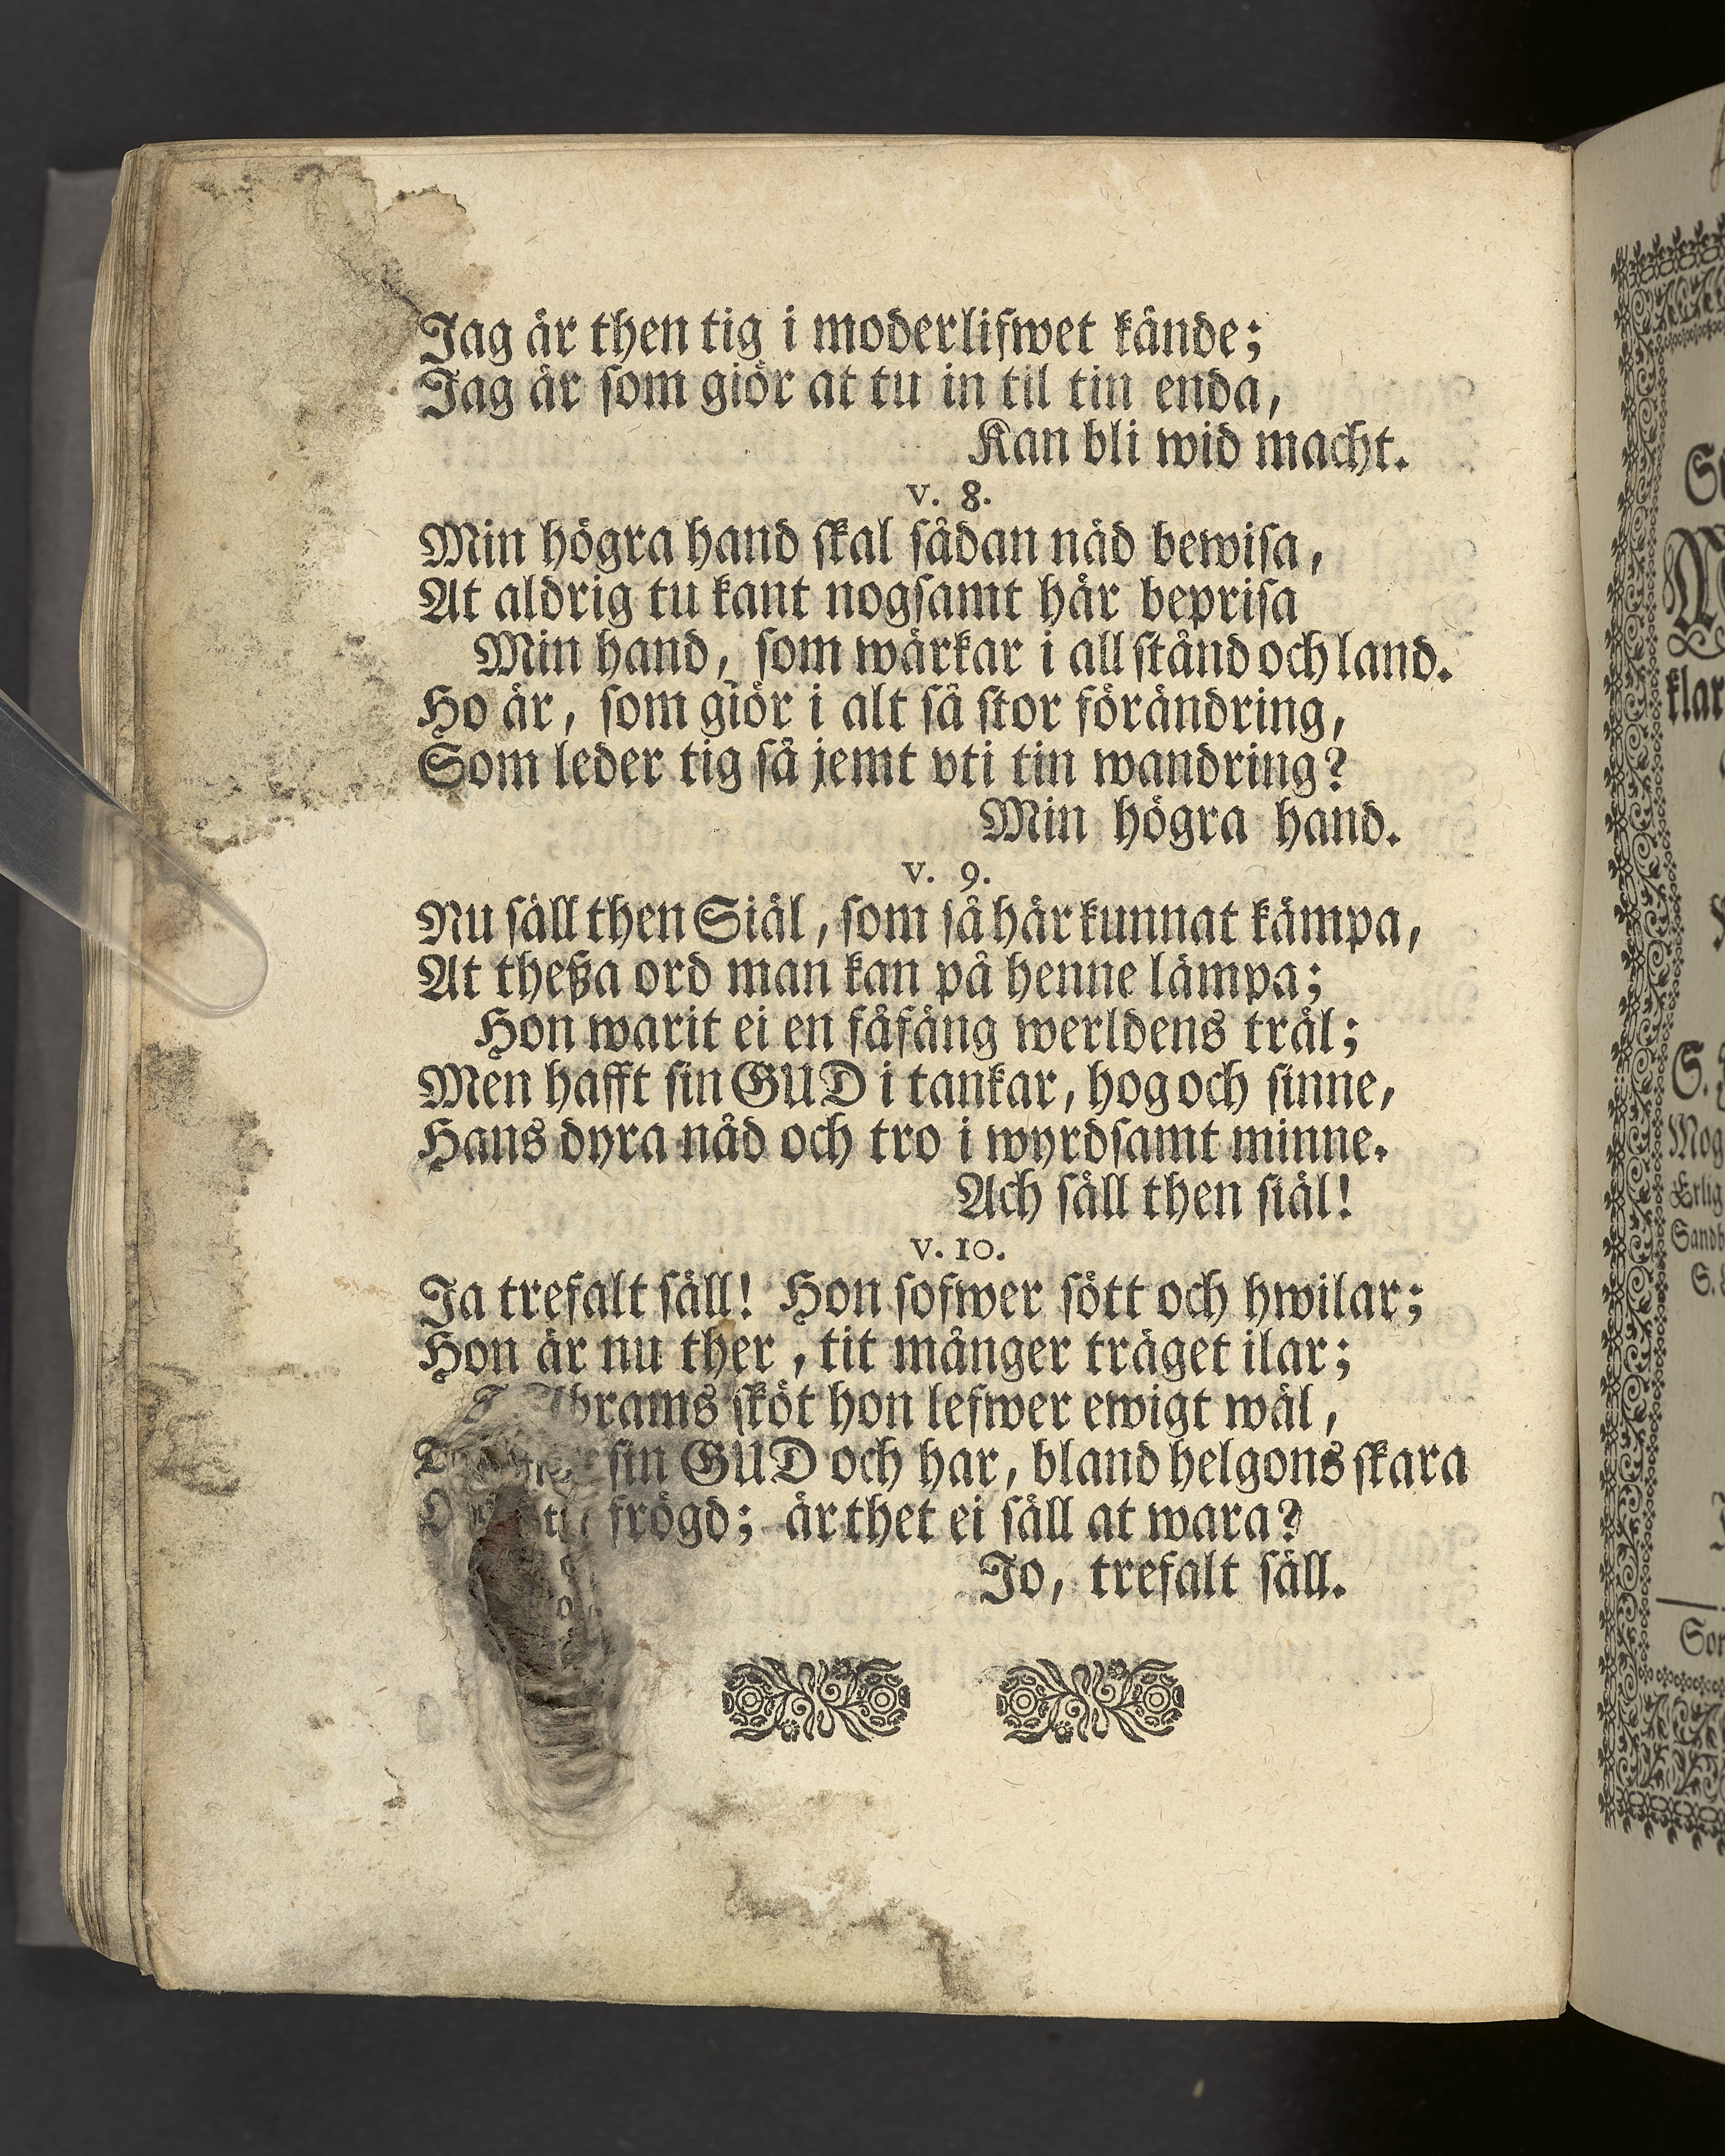 Jag är then tig i moderlifwet kände;
Jag är som giör at tu in til tin enda,
Kan bli wid macht.
v. 8.
Min högra hand skal sådan nåd bewisa,
At aldrig tu kant nogsamt här beprisa
Min hand, som wärkar i all stånd och land.
Ho är, som giör i alt så stor förändring,
Som leder tig så jemt vti tin wandring?
Min högra hand.
v. 9.
Nu säll then Siäl, som så här kunnat kämpa,
At theßa ord man kan på henne lämpa;
Hon warit ei en fåfäng werldens träl;
Men hafft sin GUD i tankar, hog och sinne,
Hans dyra nåd och tro i wyrdsamt minne.
Ach säll then siäl!
v. 10.
Ja trefalt säll! Hon sofwer sött och hwilar;
Hon är nu ther, tit månger träget ilar;
Abrams sköt hon lefwer ewigt wäl,
sin GUD och har, bland helgons skara
frögd; är thet ei säll at wara?
Jo, trefalt säll.
klar
S.
Mog
Erlig
Sandb
S.
Sor